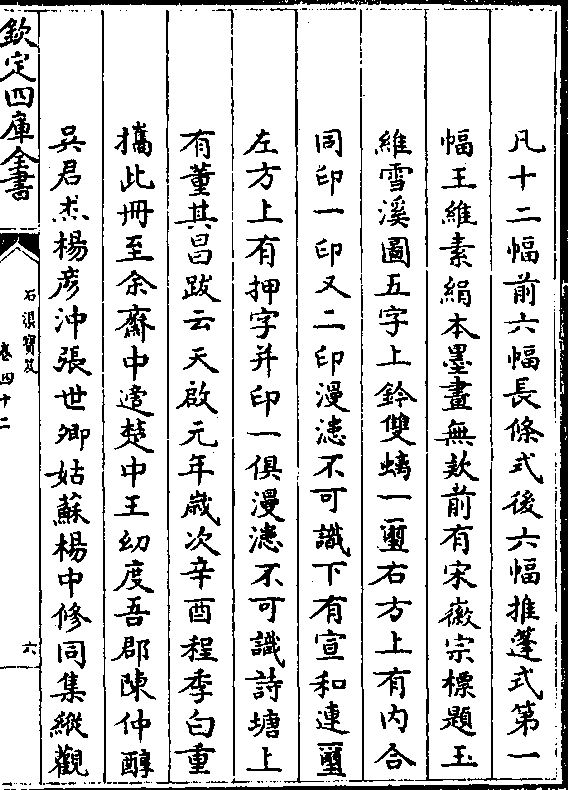 凡十二幅前六幅長條式後六幅推蓬式第一
幅王維素絹本墨畫無款前有宋徽宗標題王
維雪溪圖五字上鈐雙螭一璽右方上有内合
同印一印又二印漫漶不可識下有宣和連璽
左方上有押字并印一俱漫漶不可識詩塘上
有董其昌跋云天啟元年歲次辛酉程季白重
攜此冊至余齋中適楚中王幼度吾郡陳仲醇
吳君杰楊彦沖張世卿姑蘇楊中修同集縱觀
欽定四庫全書
石渠寶笈
卷四十二
六